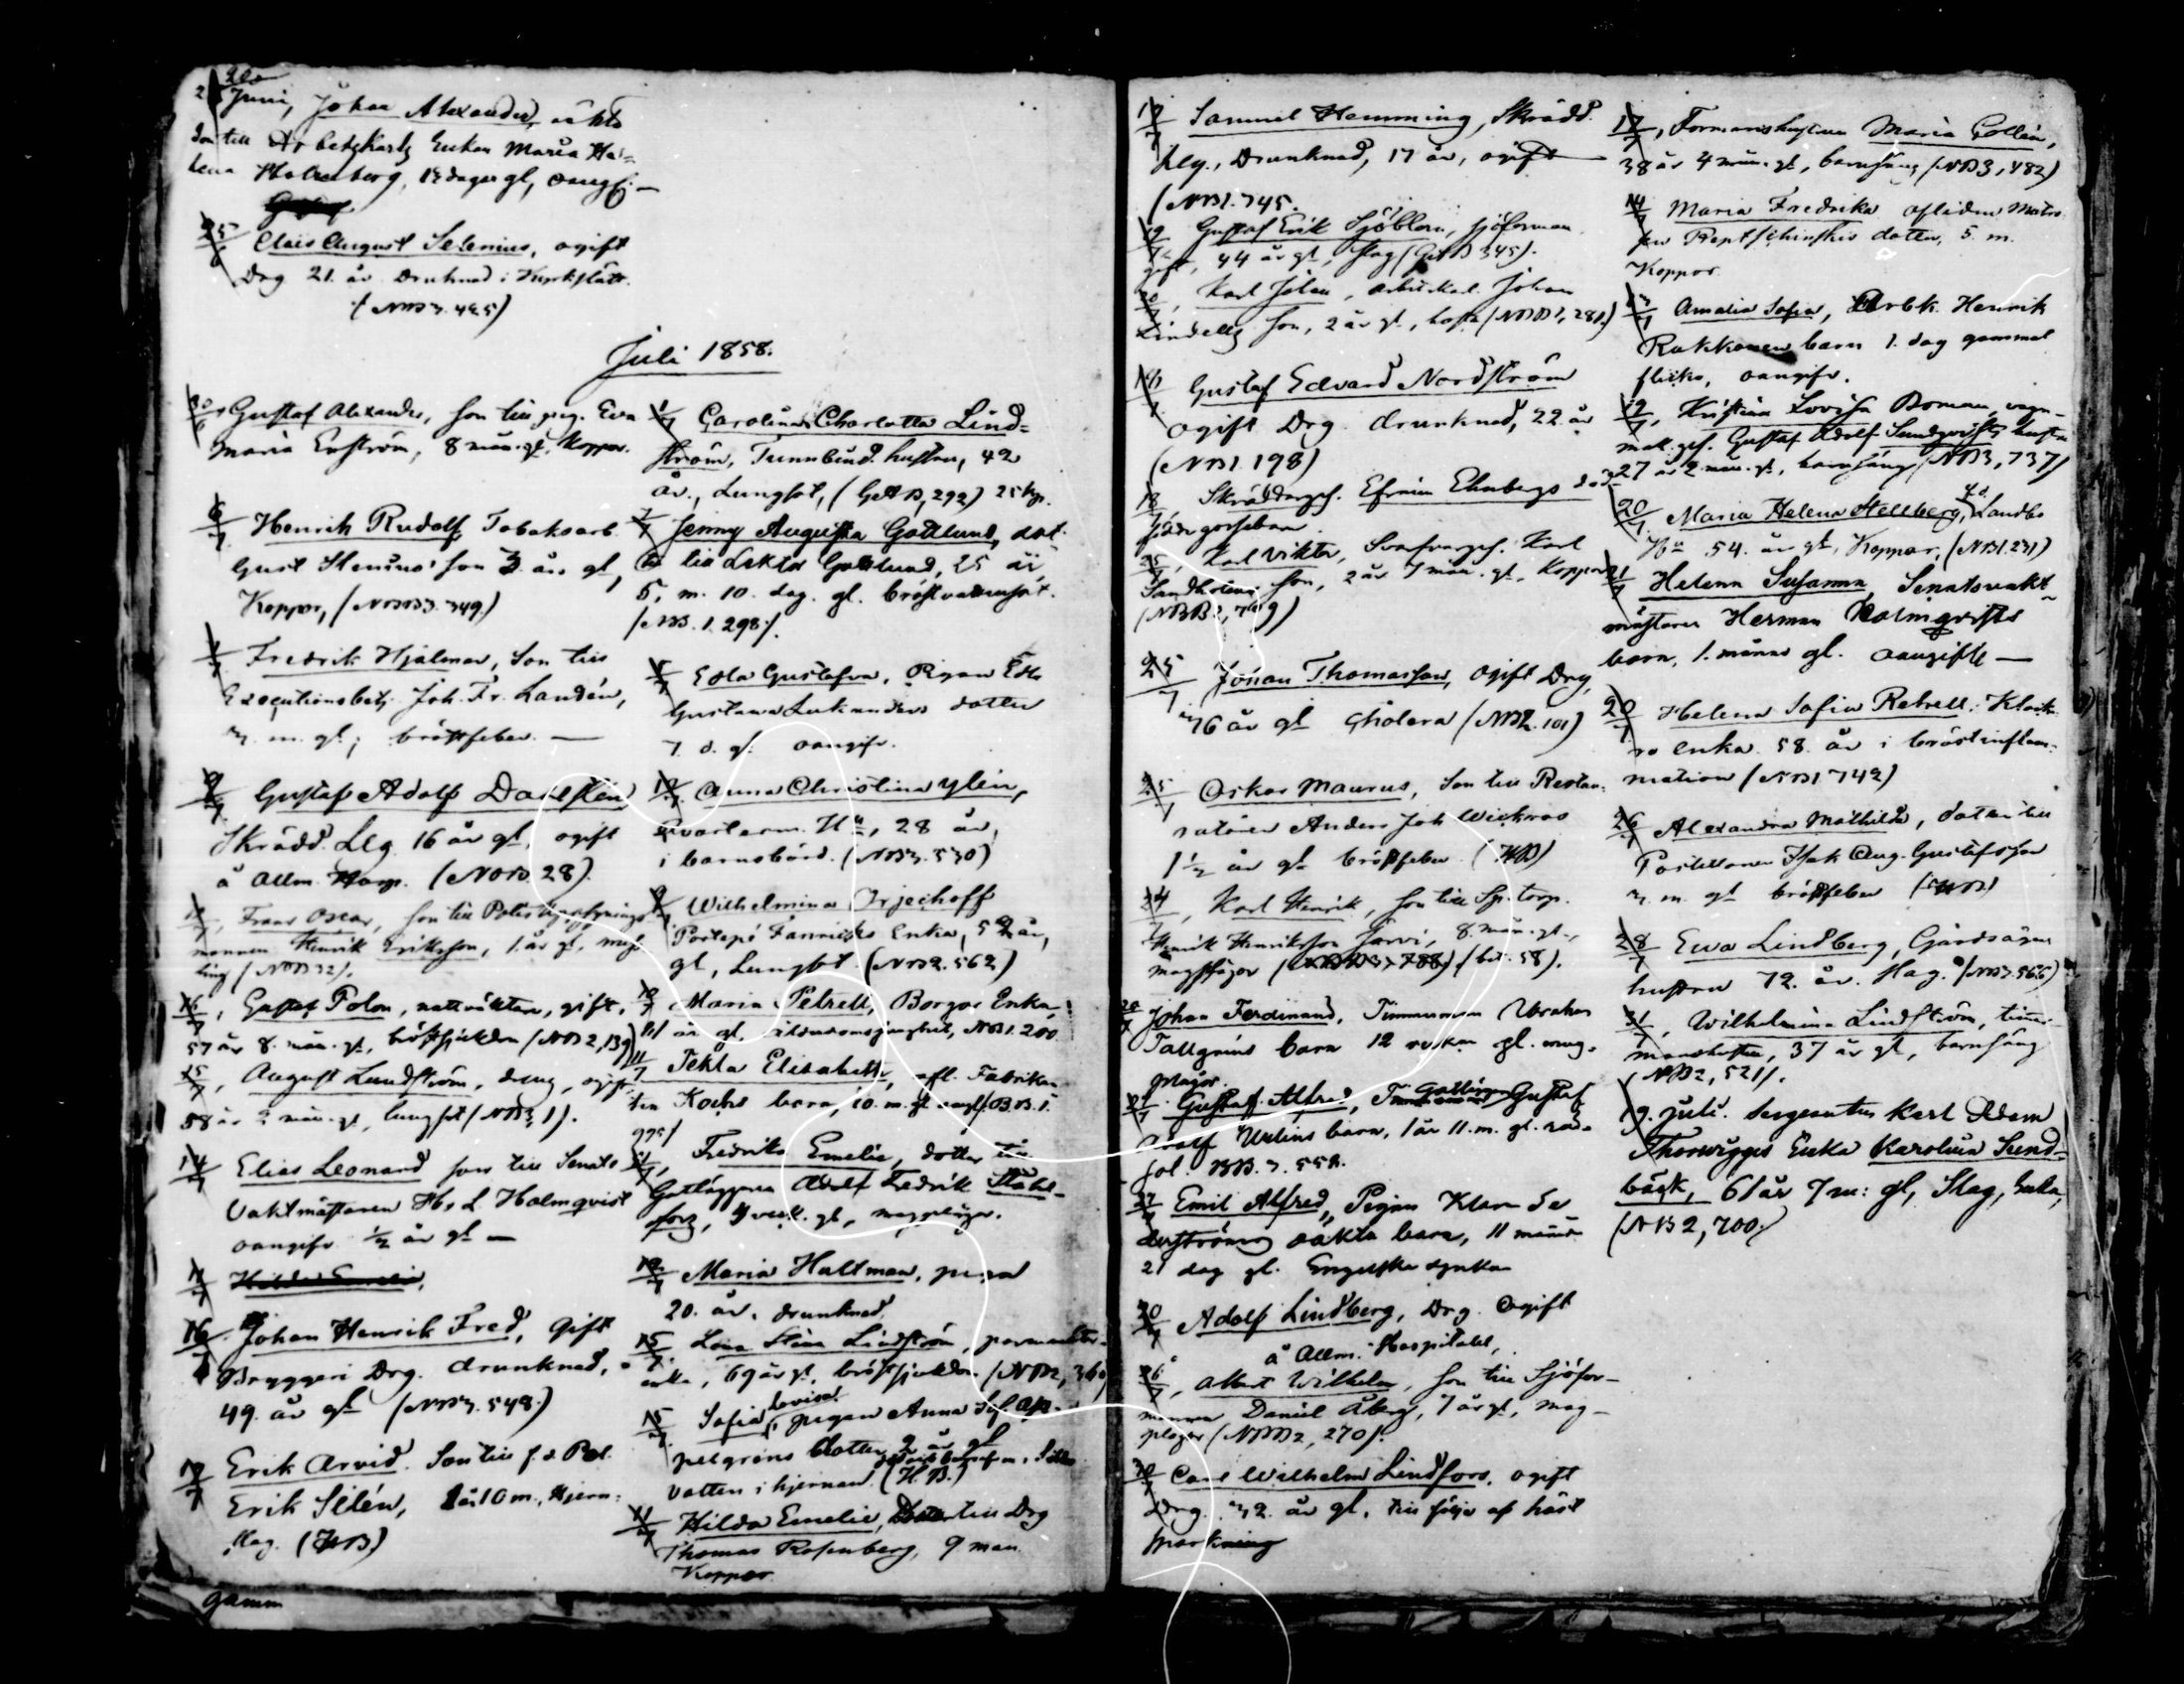 Juni, Johan Alexander, oäkta
son till Arbetskarls Enkan Maria He=
lena Holmberg, dagar gl, oangif. —
25/6 Claes August Selenius, ogift
Drg 21. år. Druknad i Kyrkslätt.
(NB3. 425)
Juli 1858.
30/6 Gustaf Alexander, son till pig. Eva
Maria Enström, 8 mån. gl, Koppor.
6/7 Henrik Rudolf, Tobaksarb.
Gust Stenius' son 3 år gl,
Koppor, (NBB3. 349)
Fredrik Hjalmar, son till
Executionsbetj. Joh. Fr. Landén,
m. gl; bröstfeber. —
9/7 Gustaf Adolf Dahlsten
Skrädd. Lrg. 16 år gl, ogift
å Allm. Hosp. (NB. 28)
Frans Oscar, son till Polisuppsynings
mannen Henrik Eriksson, 1. år gl, mess
ling (NBB 32).
16/7, Gustaf Polon, nattväktare, gift,
57 år 8. mån. gl, bröstsjukdom (NB2, 139)
15/7, August Lundström, dräng, ogift
58 år 2 mån. gl, lungsot (NB3, 1).
14/7 Elias Leonard son till Senats
Vaktmästaren H. L Holmqvist
oangifv. ½ år gl —
11/7 Hilda Emelie,
16/7 Johan Henrik Fred, gift
Bryggeri Drg. drunknad,
49. år gl (NB3. 548.)
17/7 Erik Arvid. Son till f. d Pol.
Erik Silén, 2 år 10 m., Hjern=
slag. (HB)
gamm
1/7 Carolina Charlotta Lind=
ström, Tunnbind. hustru, 42
år., Lungsot, (GAB, 292) 25 kp.
7/7 Jenny Augusta Gottlund, dot=
ter till Lektor Gottlund, 25 år,
5. m. 10. dag. gl. bröstvattusot.
(NB. 1. 298).
5/7 Edla Gustafva, Pigan Edla
Gustava Lukanders dotter
7. d. gl. oangifv.
12/7. Anna Christina Ylein,
Qvarterm. Hu, 28 år,
i barnsbörd. (NB3. 530)
9/7 Wilhelmina Orjechoff
Postepi Fannicks Enka, 52 år,
gl, Lungsot. (NB2. 562)
10/7 Maria Petrell, Borgar Enka,
81 år gl, ålderdomsjuklighet, NB1. 200
11/7 Tekla Elisabeth, afl. Fabrikan
ten Kochs barn, 10. m. gl
Fredrika Emelie, dotter till
Gatläggaren Adolf Fredrik Ståhl=
fors, 9 veck. gl, magplågor.
12/7 Maria Haltman, piga
20. år. drunknad.
15/7. Lena Stina Lindström,
enka, 69 år gl, bröstsjukdom (NB2, 360)
15/7 Sofia Lovisa, pigan Anna Sof. Ap=
pelgrens dotter, 2 år gl
vatten i hjernan. (H.B.)
11/7 Hilda Emelie, Dotter till Drg
Thomas Rosenberg, 9 mån.
Koppor
17/7 Samuel Hemming, Skrädd.
Lrg., Drunknad, 17 år, ogift —
(NB1. 745.
19/7 Gustaf Erik Sjöblom, sjöforman
gift, 44 år gl, slag (GAB 345).
20/7, Karl Johan, arbetskarl. Johan
Lindells son, 2 år gl, hosta (NBB1, 281.)
Gustaf Edvard Nordström
ogift Drg. drunknad, 22 år
(NB1 198)
18 Skräddargs. Efraim Ekebergs död=
född gossebarn.
25/7, Karl Viktor, Svarfvargs. Karl
Sandholms son, 2 år 7 mån. gl, Koppor
25/7 Jonan Thomasson, ogift Drg,
76 år gl Cholera (NB2. 101)
25/7 Oskar Maurus, Son till Restau=
ratören Anders Joh Wickras
1½ år gl bröstfeber. (HB)
24/7, Karl Henrik, son till Sp. torp.
Henrik Henriksson Järvi, 8. mån. gl,
magplågor (bet. 58).
Johan Ferdinand, Timmerman Abraham
Tallgrens barn 12 veckor gl. mag=
plågor.
Gustaf Alfred, Gatlägg. Gustaf
Adolf Uhlins barn, 1 år 11. m. gl.
fol. BB. 3. 552.
27/7 Emil Alfred, Pigan Klara Se
derströms oäkta barn, 11 månd
21 dag gl. Engelska sjukan
20/7 Adolf Lindberg, Drg. Ogift
å Allm. Hospitalet,
26/7, Albert Wilhelm, son till Sjöfor=
mannen Daniel Åberg, 7 år gl, mag=
plågor (NBB2, 270).
Carl Wilhelm Lindfors, ogift
Drg. 32. år gl, till följe af häst
sparkning
17/7, Formanshustrun Maria Gollén,
38 år 4 mån. gl, barnsäng (NB3, 482)
14/7 Maria Fredrika aflidne Matro
sen dotter, 5. m.
Koppor.
Amalia Sofia, Arbk. Henrik
Rukkonen barn 1. dag gammal
flicka, oangifv.
19/7, Kristina Lovisa Boman, vagn=
mak. ges. Gustaf Adolf Sundqvists hustru
27 år 2 mån. gl, barnsäng (NB3, 737)
20/7 Maria Helena Hellberg, f.d. Landbo
Hu 54. år gl, Koppor, (NB1. 271)
21/7 Helena Susanna, Senatsvakt=
mästaren Herman Holmqvists
barn, 1. månad gl. oangifv —
20/7 Helena Sofia Retrell. Klock=
ro Enka. 58. år i bröstinflam=
mation (NB1 742)
26/7 Alexandra Mathilda, dotter till
Postillonen Isak Aug. Gustafsson
m. gl bröstfeber (HB)
28/7 Ewa Lindberg, Gårdsägar
hustru 72. år. Slag. (NB3. 566)
31/7, Wilhelmina Lindström, timmer=
manshustru, 37 år gl, barnsäng
(NB2, 521).
9. juli. Sergeanten Karl Adam
Thorwigges Enka Karolina Sund=
bäck, 61 år 7 m: gl, Slag,
(NB 2, 700.)